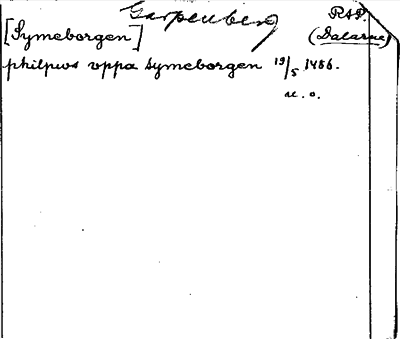 Garpenberg RAP.
[Symeborgen] (Dalarne)
philpus vppa symeborgen 19/5 1486.
u. o.